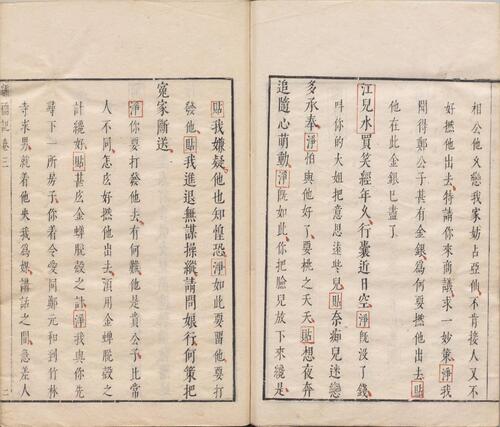 相公他久戀我家妨占亞仙不肯接人又不
好攆他出去特請你來商議求一妙策淨我
聞得鄭公子甚有金銀爲何要攆他出去貼
他在此金銀已盡了
江兒水買笑經年久行囊近日空淨既沒了錢
叫你的大姐把意思遠些兒貼奈癡兒迷戀
多承奉淨怕與他好了要桃之夭夭貼想夜奔
追隨心萌動淨既如此你把臉兒放下來纔是
貼我嫌疑他也知惶恐淨如此要留他要打
發他貼我進退無謀操縱請問娘行何策把
冤家斷送
淨你要打發他去有何難他是貴公子比常
人不同怎庅好攆他出去須用金蟬脫殼之
計纔好貼甚庅金蟬脫殼之計淨我與你先
尋下一所房子你着令愛同鄭元和到竹林
寺求男就着他來我爲講話之間急差人
繡襦記卷三